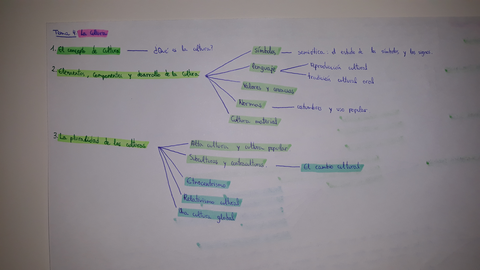 Tema 4: La cultura
1. El concepto de cultura — ¿Qué es la cultura?
2. Elementos, componentes y desarrollo de la cultura
Símbolos — semiótica: el estudio de los símbolos y los signos
Lenguaje
reproducción cultural
tradición cultural oral
Valores y creencias
Normas — costumbres y uso popular
Cultura material
3. La pluralidad de las culturas
Alta cultura y cultura popular
Subculturas y contraculturas — El cambio cultural
Etnocentrismo
Relativismo cultural
Una cultura global